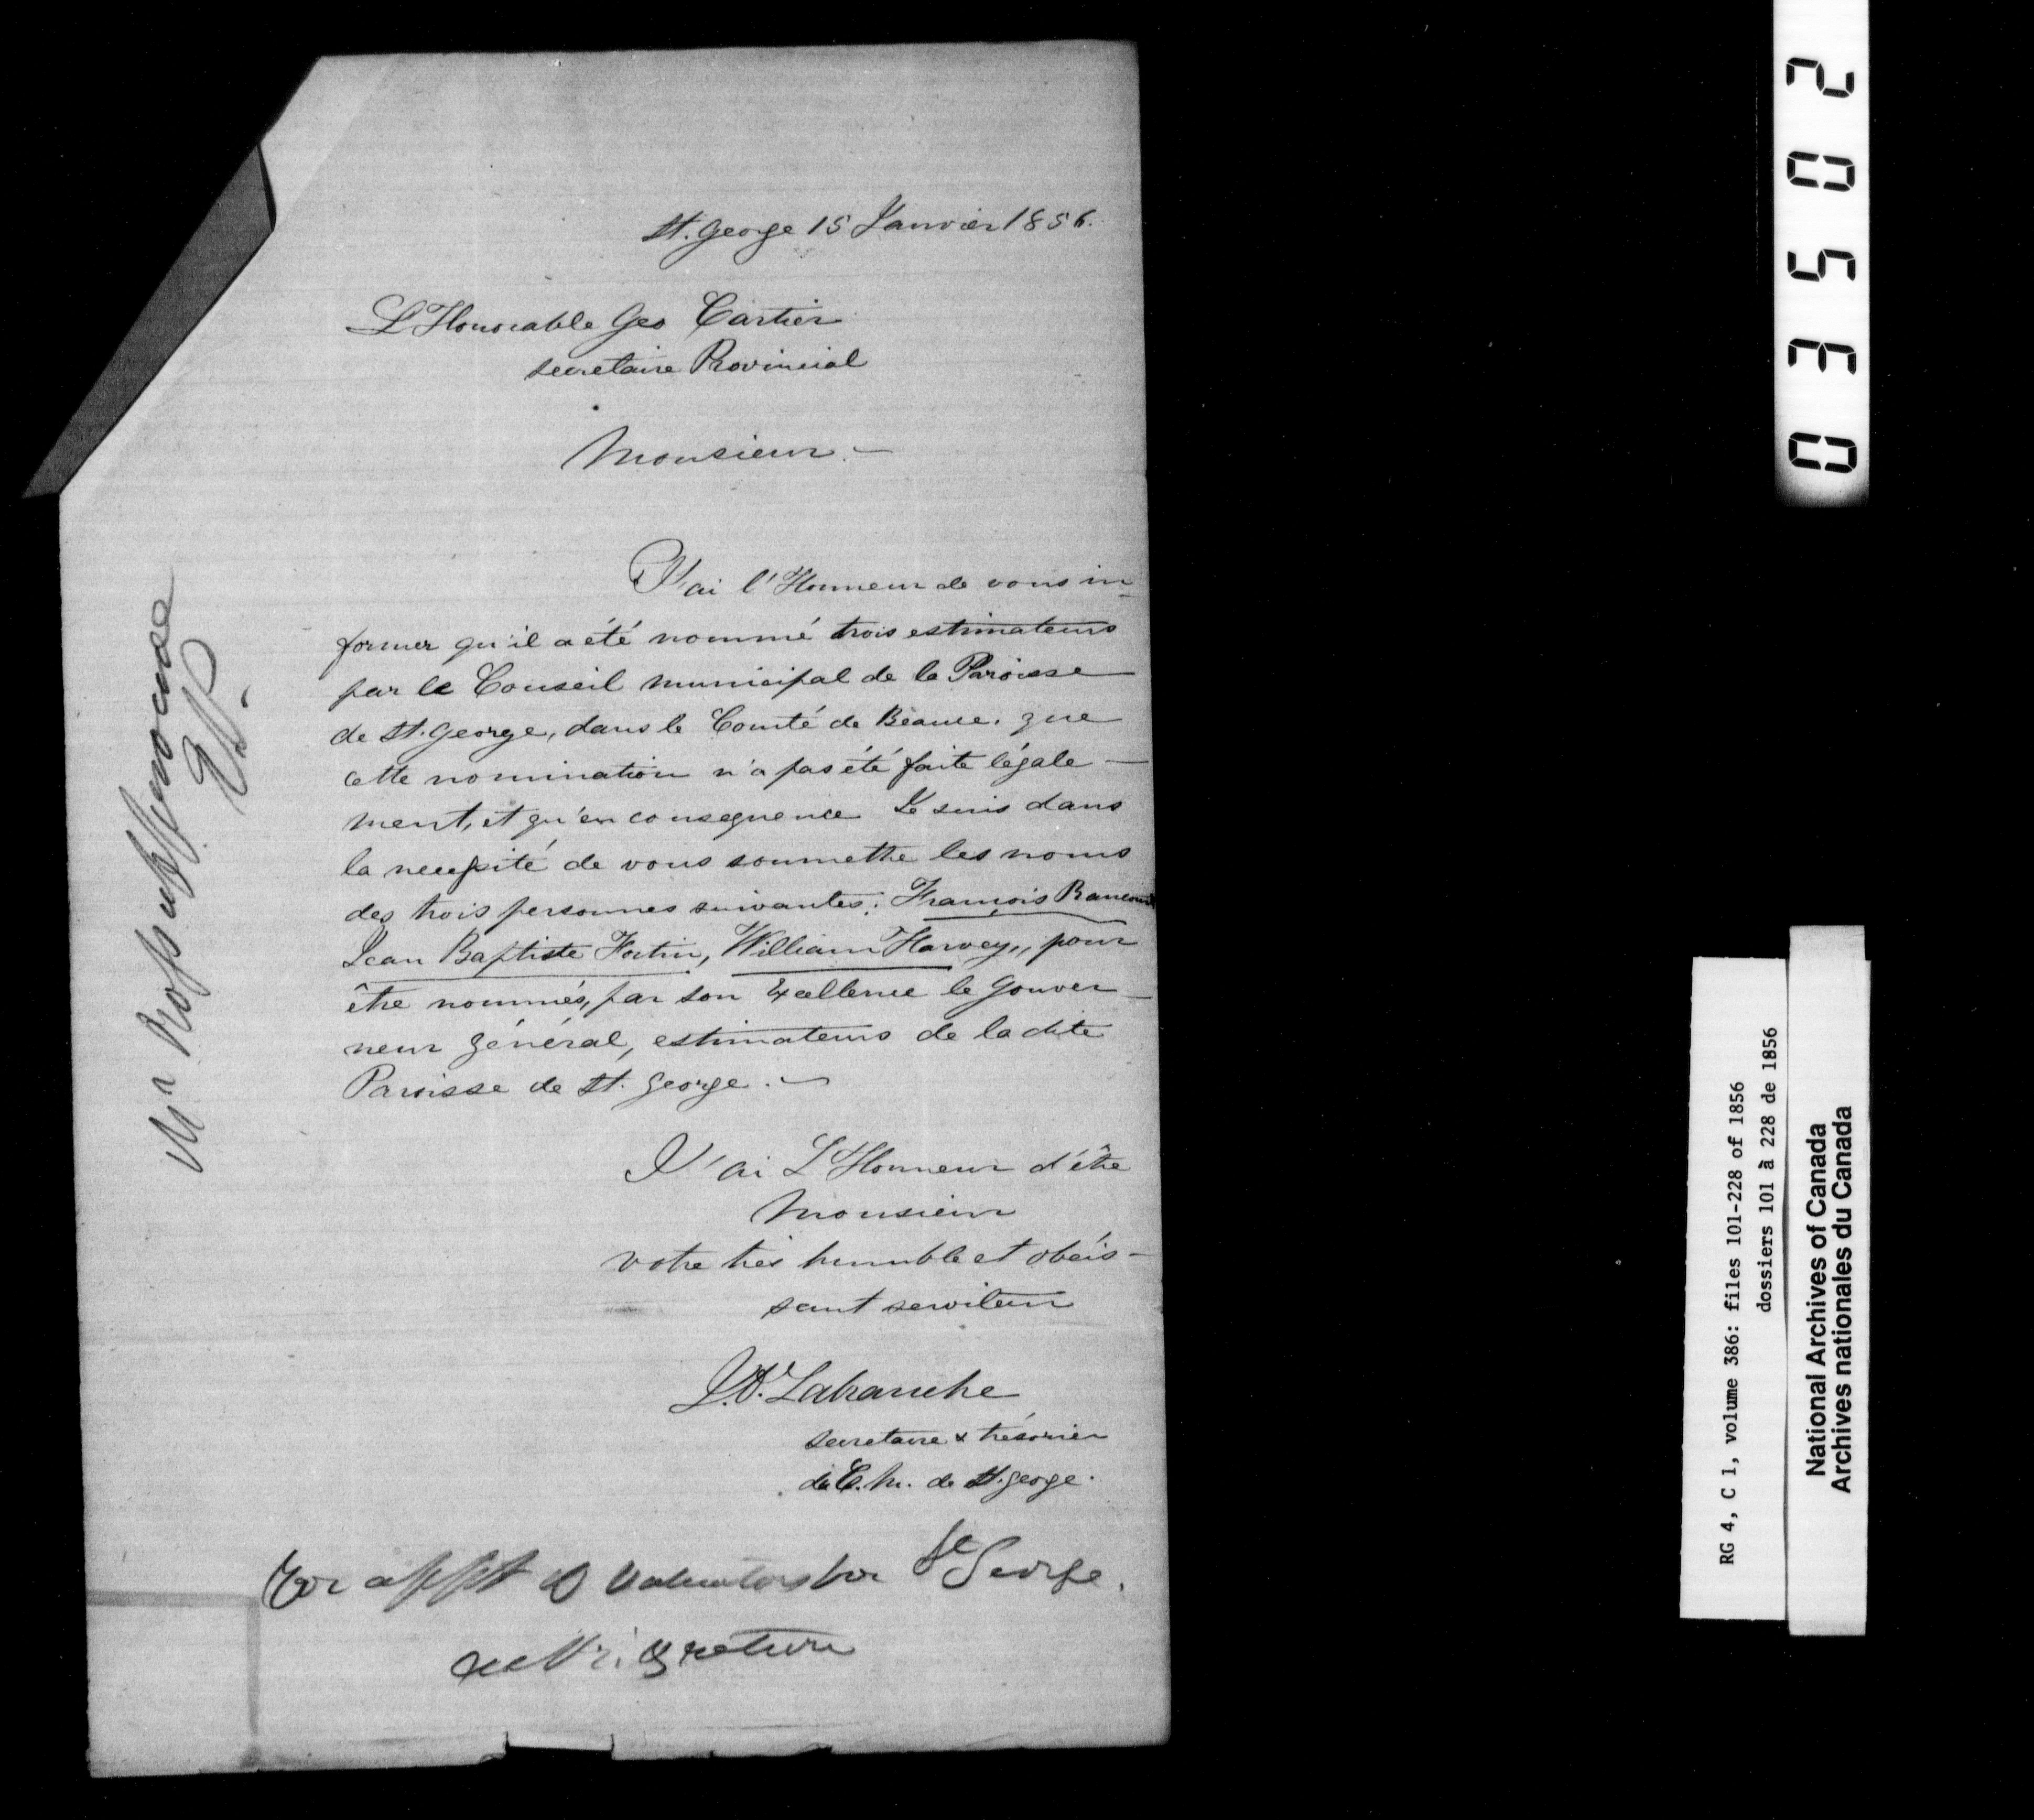 St. George 15 Janvier 1856.
L'Honorable Geo Cartier
secretaire Provincial
Monsieur.—
J'ai l'Honneur de vous in-
former qu'il a été nommé trois estimateurs
par le Conseil municipal de la Paroisse
de St. George, dans le Comté de Beauce. que
cette nomination n'a pas été faite légale-
ment, et qu'en consequence Je suis dans
la necessité de vous soumettre les noms
des trois personnes suivantes: François Rancourt
Jean Baptiste Fortin, William Harvey, pour
être nommés, par son Excellence le Gouver-
neur général, estimateurs de la dite
Paroisse de St. George.—
J'ai L'Honneur d'être
Monsieur
votre très humble et obéis-
sant serviteur
Labranche
secretaire & trésorier
du C. M. de St. George.
For appt of Valuators for St George.
Mr Ross
03502
RG 4, C 1, volume 386: files 101-228 of 1856
dossiers 101 à 228 de 1856
National Archives of Canada
Archives nationales du Canada